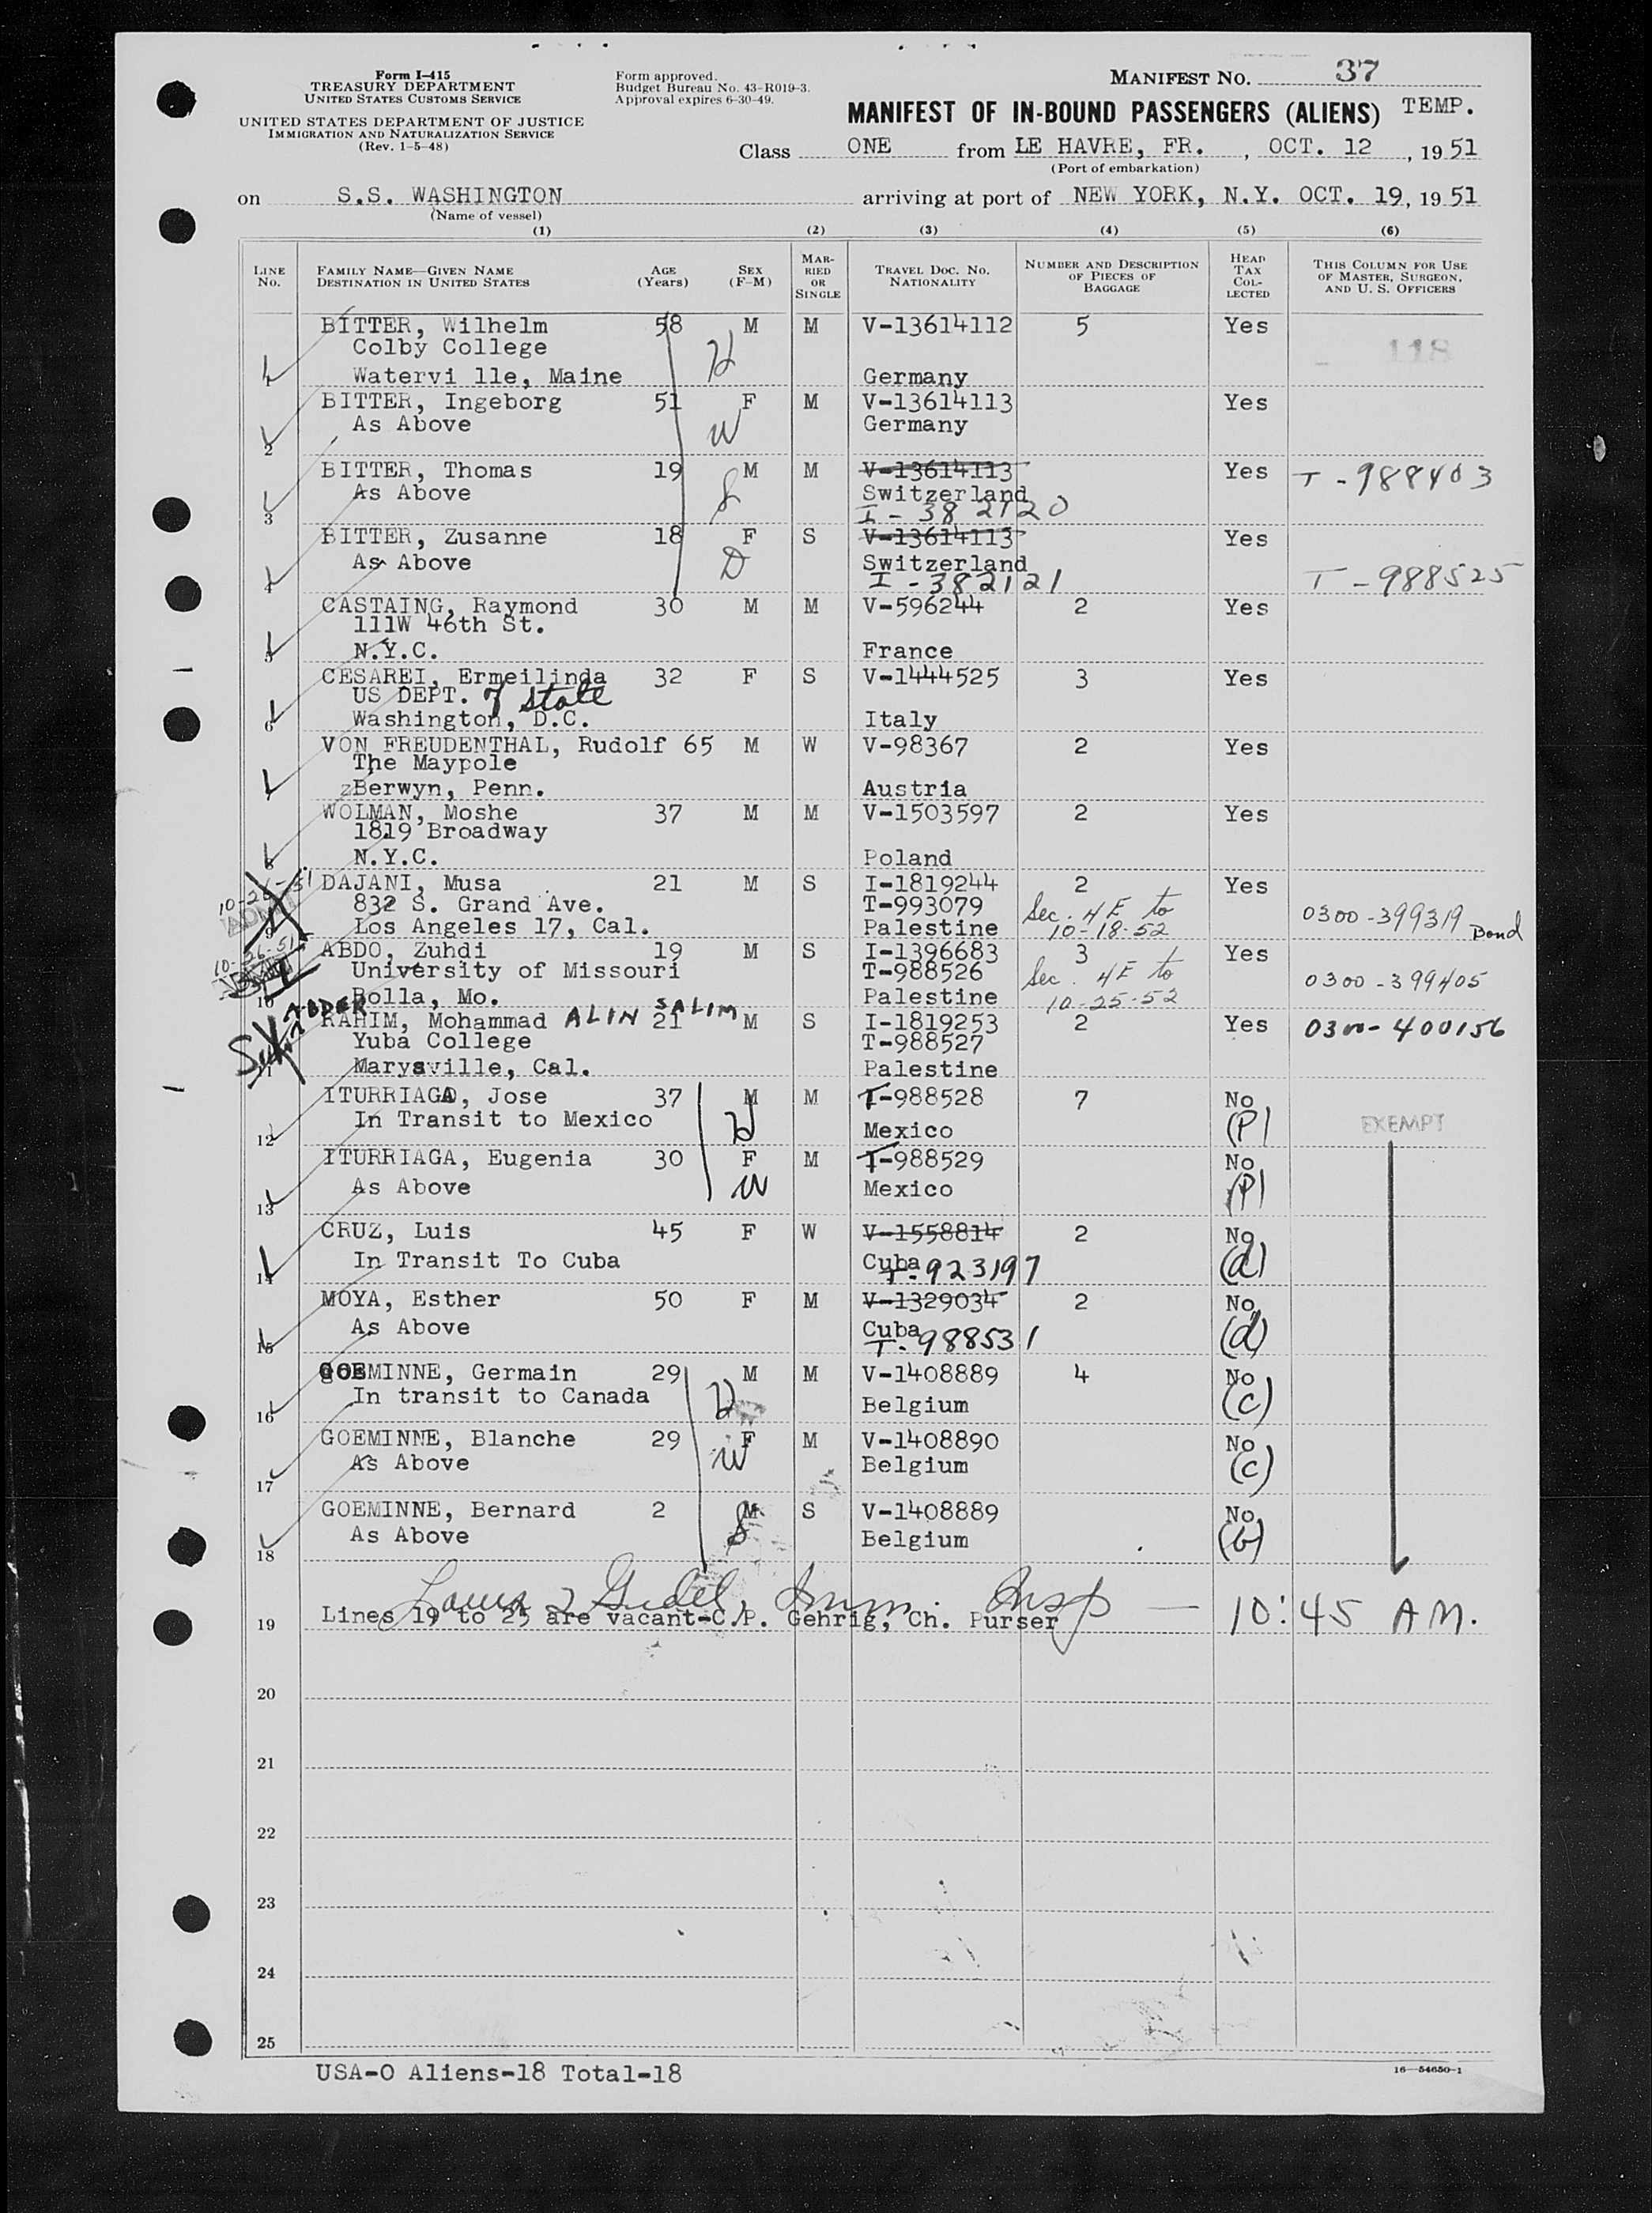 Form I-415
TREASURY DEPARTMENT
UNITED STATES CUSTOMS SERVICE
UNITED STATES DEPARTMENT OF JUSTICE
IMMIGRATION AND NATURALIZATION SERVICE
(Rev. 1-5-48)
Form approved.
Budget Bureau No. 43-R019-3.
Approval expires 6-30-49.
MANIFEST NO. 37
MANIFEST OF IN-BOUND PASSENGERS (ALIENS) TEMP.
Class ONE from LE HAVRE, FR. , OCT. 12 , 19 51
(Port of embarkation)
on S.S. WASHINGTON arriving at port of NEW YORK, N.Y. OCT. 19, 19 51
(Name of vessel)
(1) (2) (3) (4) (5) (6)
LINE NO. FAMILY NAME—GIVEN NAME DESTINATION IN UNITED STATES AGE (Years) SEX (F-M) MARRIED OR SINGLE TRAVEL DOC. NO. NATIONALITY NUMBER AND DESCRIPTION OF PIECES OF BAGGAGE HEAD TAX COLLECTED THIS COLUMN FOR USE OF MASTER, SURGEON, AND U. S. OFFICERS
BITTER, Wilhelm 58 M M V-13614112 5 Yes
Colby College H 118
Watervi lle, Maine Germany
BITTER, Ingeborg 51 F M V-13614113 Yes
2 As Above W Germany
BITTER, Thomas 19 M M V-13614113 Yes T-988403
As Above S Switzerland
3 I-382120
BITTER, Zusanne 18 F S V-13614113 Yes
As Above D Switzerland T-988525
4 I-382121
CASTAING, Raymond 30 M M V-596244 2 Yes
111W 46th St.
5 N.Y.C. France
CESAREI, Ermeilinda 32 F S V-1444525 3 Yes
US DEPT. of State
6 Washington, D.C. Italy
VON FREUDENTHAL, Rudolf 65 M W V-98367 2 Yes
The Maypole
7 zBerwyn, Penn. Austria
WOLMAN, Moshe 37 M M V-1503597 2 Yes
1819 Broadway
8 N.Y.C. Poland
DAJANI, Musa 21 M S I-1819244 2 Yes
832 S. Grand Ave. T-993079 Sec. 4E to 0300-399319 Bond
9 Los Angeles 17, Cal. Palestine 10-18-52
10-26-51 ABDO, Zuhdi 19 M S I-1396683 3 Yes
University of Missouri T-988526 Sec. 4E to 0300-399405
10 Rolla, Mo. Palestine 10-25-52
ABDER RAHIM, Mohammad ALIN SALIM 21 M S I-1819253 2 Yes 0300-400156
Yuba College T-988527
11 Marysville, Cal. Palestine
ITURRIAGA, Jose 37 M M T-988528 7 No
12 In Transit to Mexico H Mexico (P) EXEMPT
ITURRIAGA, Eugenia 30 F M T-988529 No
13 As Above W Mexico (P)
CRUZ, Luis 45 F W V-1558814 2 No
14 In Transit To Cuba Cuba T-923197 (d)
MOYA, Esther 50 F M V-1329034 2 No
15 As Above Cuba T-988531 (d)
GOEMINNE, Germain 29 M M V-1408889 4 No
16 In transit to Canada H Belgium (c)
GOEMINNE, Blanche 29 F M V-1408890 No
17 As Above W Belgium (c)
GOEMINNE, Bernard 2 M S V-1408889 No
18 As Above S Belgium (b)
Imm. Insp — 10:45 AM.
19 Lines 19 to 25 are vacant-C.P. Gehrig, Ch. Purser
20
21
22
23
24
25
USA-0 Aliens-18 Total-18
16—54650-1